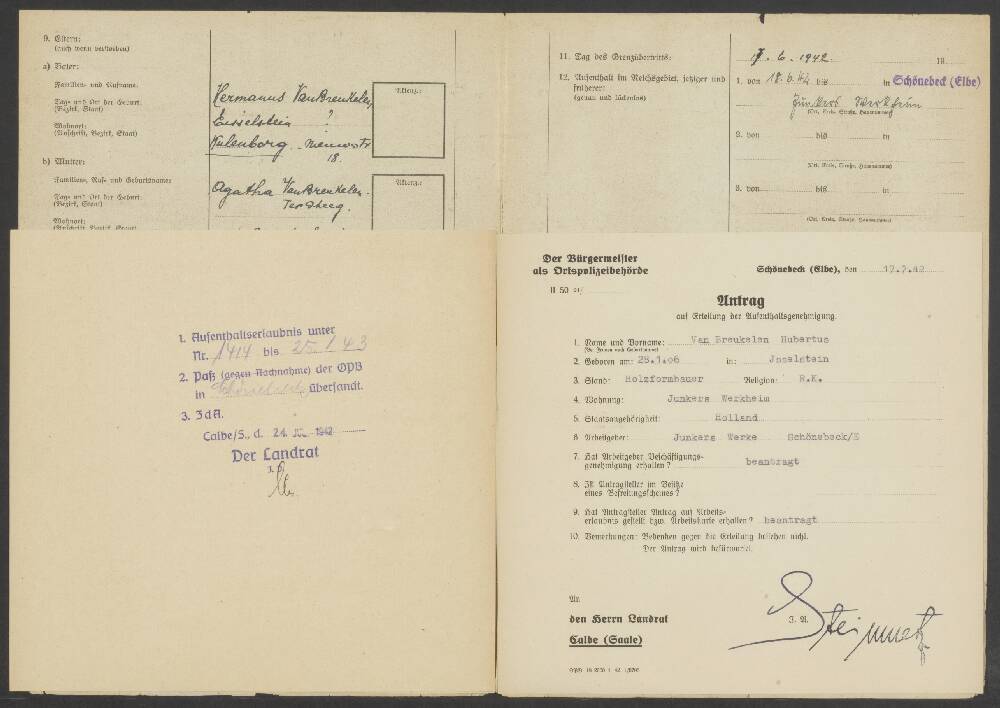 9. Eltern:
(auch wenn verstorben)
a) Vater:
Familien- und Rufname:
Hermanus VanBreukelen
Aktenz.:
Tage und Ort der Geburt:
(Bezirk, Staat)
Eisselstein ?
Wohnort:
(Anschrift, Bezirk, Staat)
Kulenborg
18.
b) Mutter:
Familien-, Ruf- und Geburtsname:
Agatha VanBreukelen
Aktenz.:
Tage und Ort der Geburt:
(Bezirk, Staat)
Wohnort:
(Anschrift, Bezirk, Staat)
11. Tag des Grenzübertritts:
7. 6. 1942
12. Aufenthalt im Reichsgebiet, jetziger und
früherer:
(genau und lückenlos)
1. von 18.6.42 bis in Schönebeck (Elbe)
Junkers Werkheim
(Ort, Kreis, Straße, Hausnummer)
2. von bis in
(Ort, Kreis, Straße, Hausnummer)
3. von bis in
(Ort, Kreis, Straße, Hausnummer)
1. Aufenthaltserlaubnis unter
Nr. 1414 bis 25/1 43
2. Paß (gegen Nachnahme) der OPB
in Schönebeck übersandt.
3. ZdA.
Calbe/S., d. 24. JUL 1942
Der Landrat
J. A.
Der Bürgermeister
als Ortspolizeibehörde
Schönebeck (Elbe), den 17.7.42
II 50
Antrag
auf Erteilung der Aufenthaltsgenehmigung.
1. Name und Vorname: Van Breukelen Hubertus
(Bei Frauen auch Geburtsname)
2. Geboren am: 25.1.06 in: Jsselstein
3. Stand: Holzformbauer Religion: R.K.
4. Wohnung: Junkers Werkheim
5. Staatsangehörigkeit: Holland
6. Arbeitgeber: Junkers Werke Schönebeck/E
7. Hat Arbeitgeber Beschäftigungs-
genehmigung erhalten? beantragt
8. Ist Antragsteller im Besitze
eines Befreiungsscheines?
9. Hat Antragsteller Antrag auf Arbeits-
erlaubnis gestellt bzw. Arbeitskarte erhalten? beantragt
10. Bemerkungen: Bedenken gegen die Erteilung bestehen nicht.
Der Antrag wird befürwortet.
An
den Herrn Landrat
Calbe (Saale)
J. A.
Steinmetz